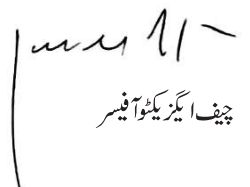 چیف ایگزیکٹو آفیسر